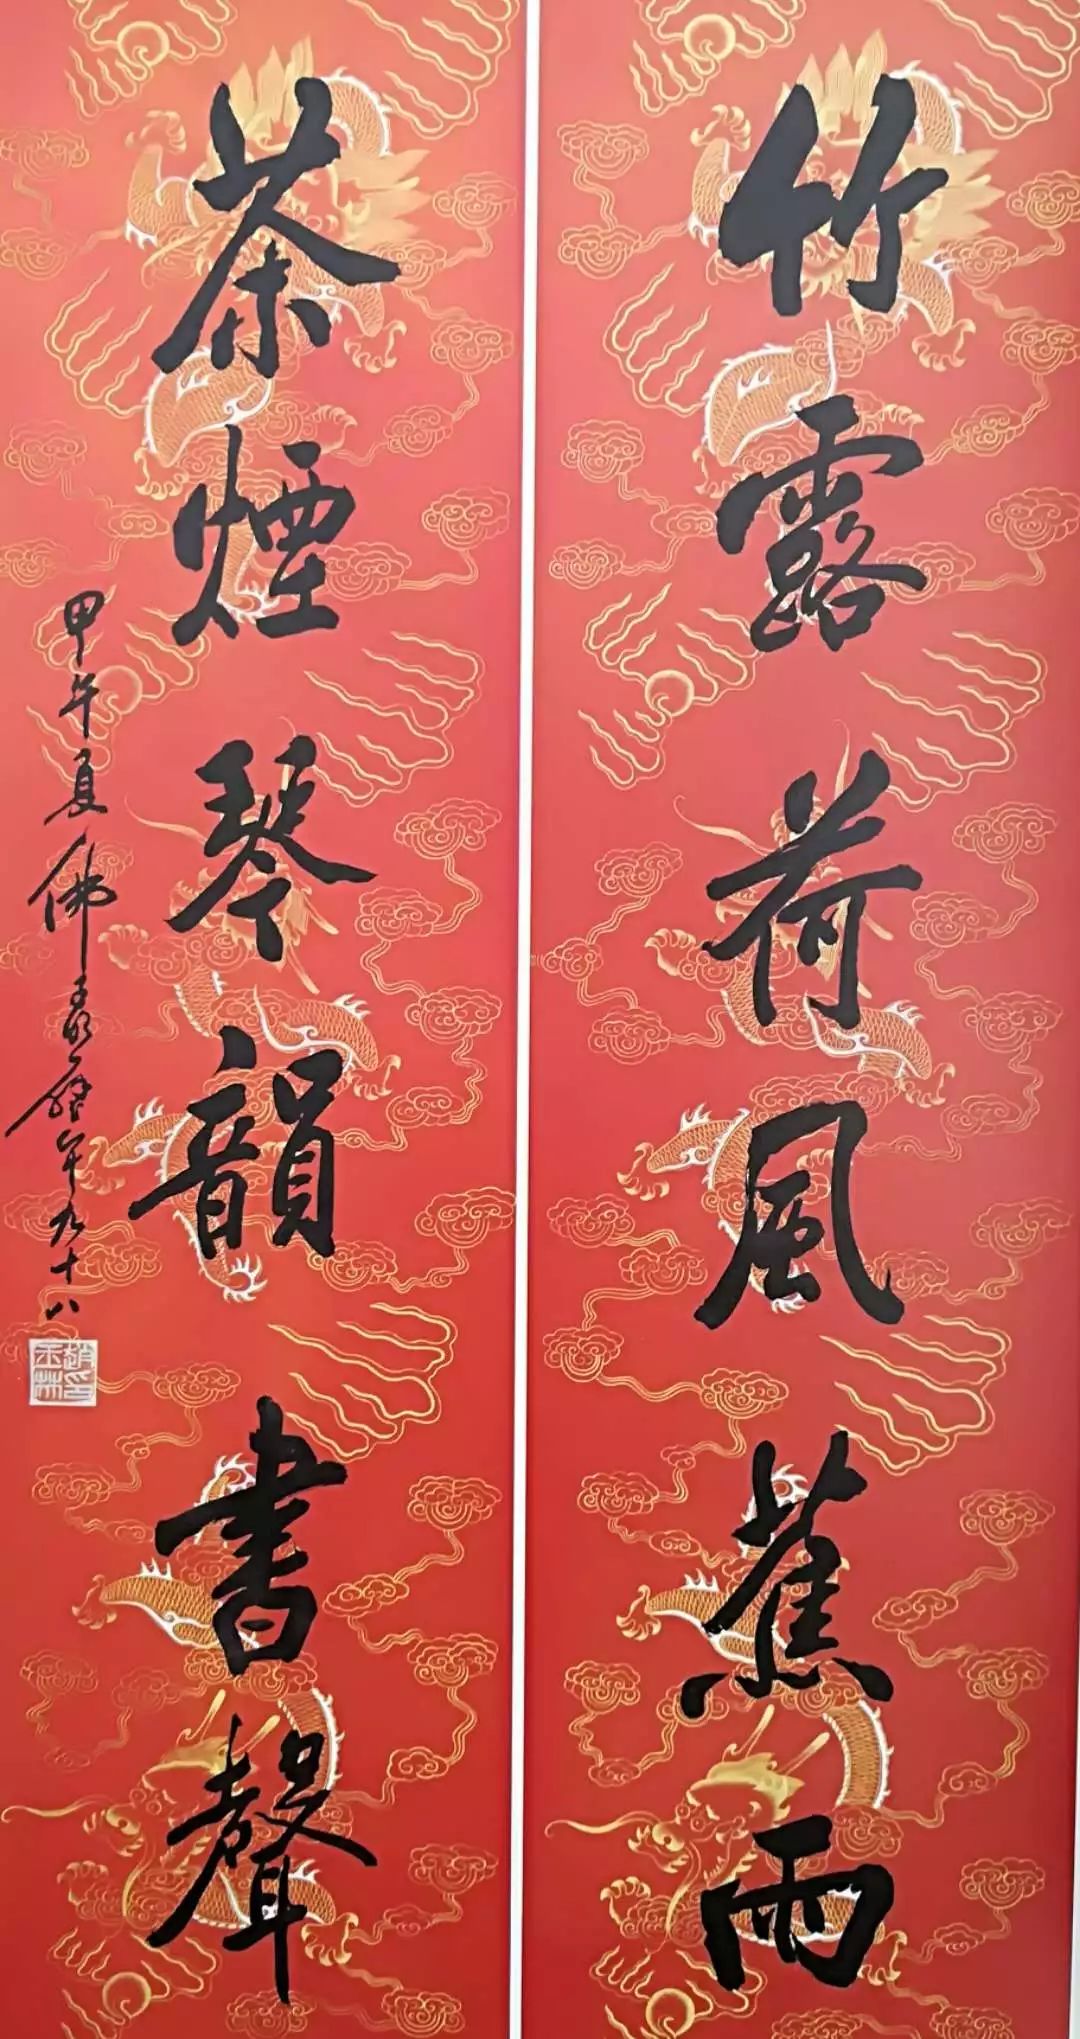 竹露荷風蕉雨
茶煙琴韻書聲
甲午夏佛 年九十八